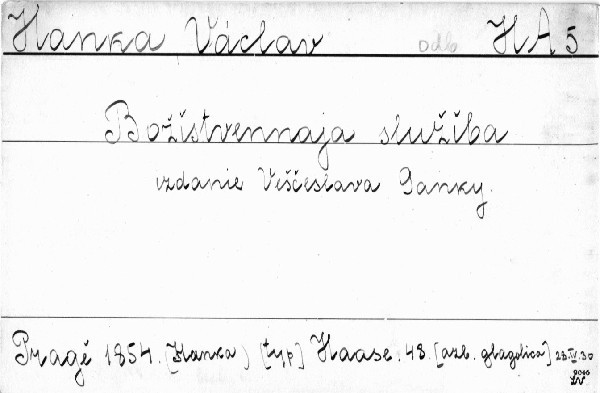 Hanka Václav odb HA 5
Božístvennaja služíba
izdanie Veščeslava Ganky.
Pragě 1854. (Hanka) [typ] Haase. 48. [azb. glagolica] 23.IV.30